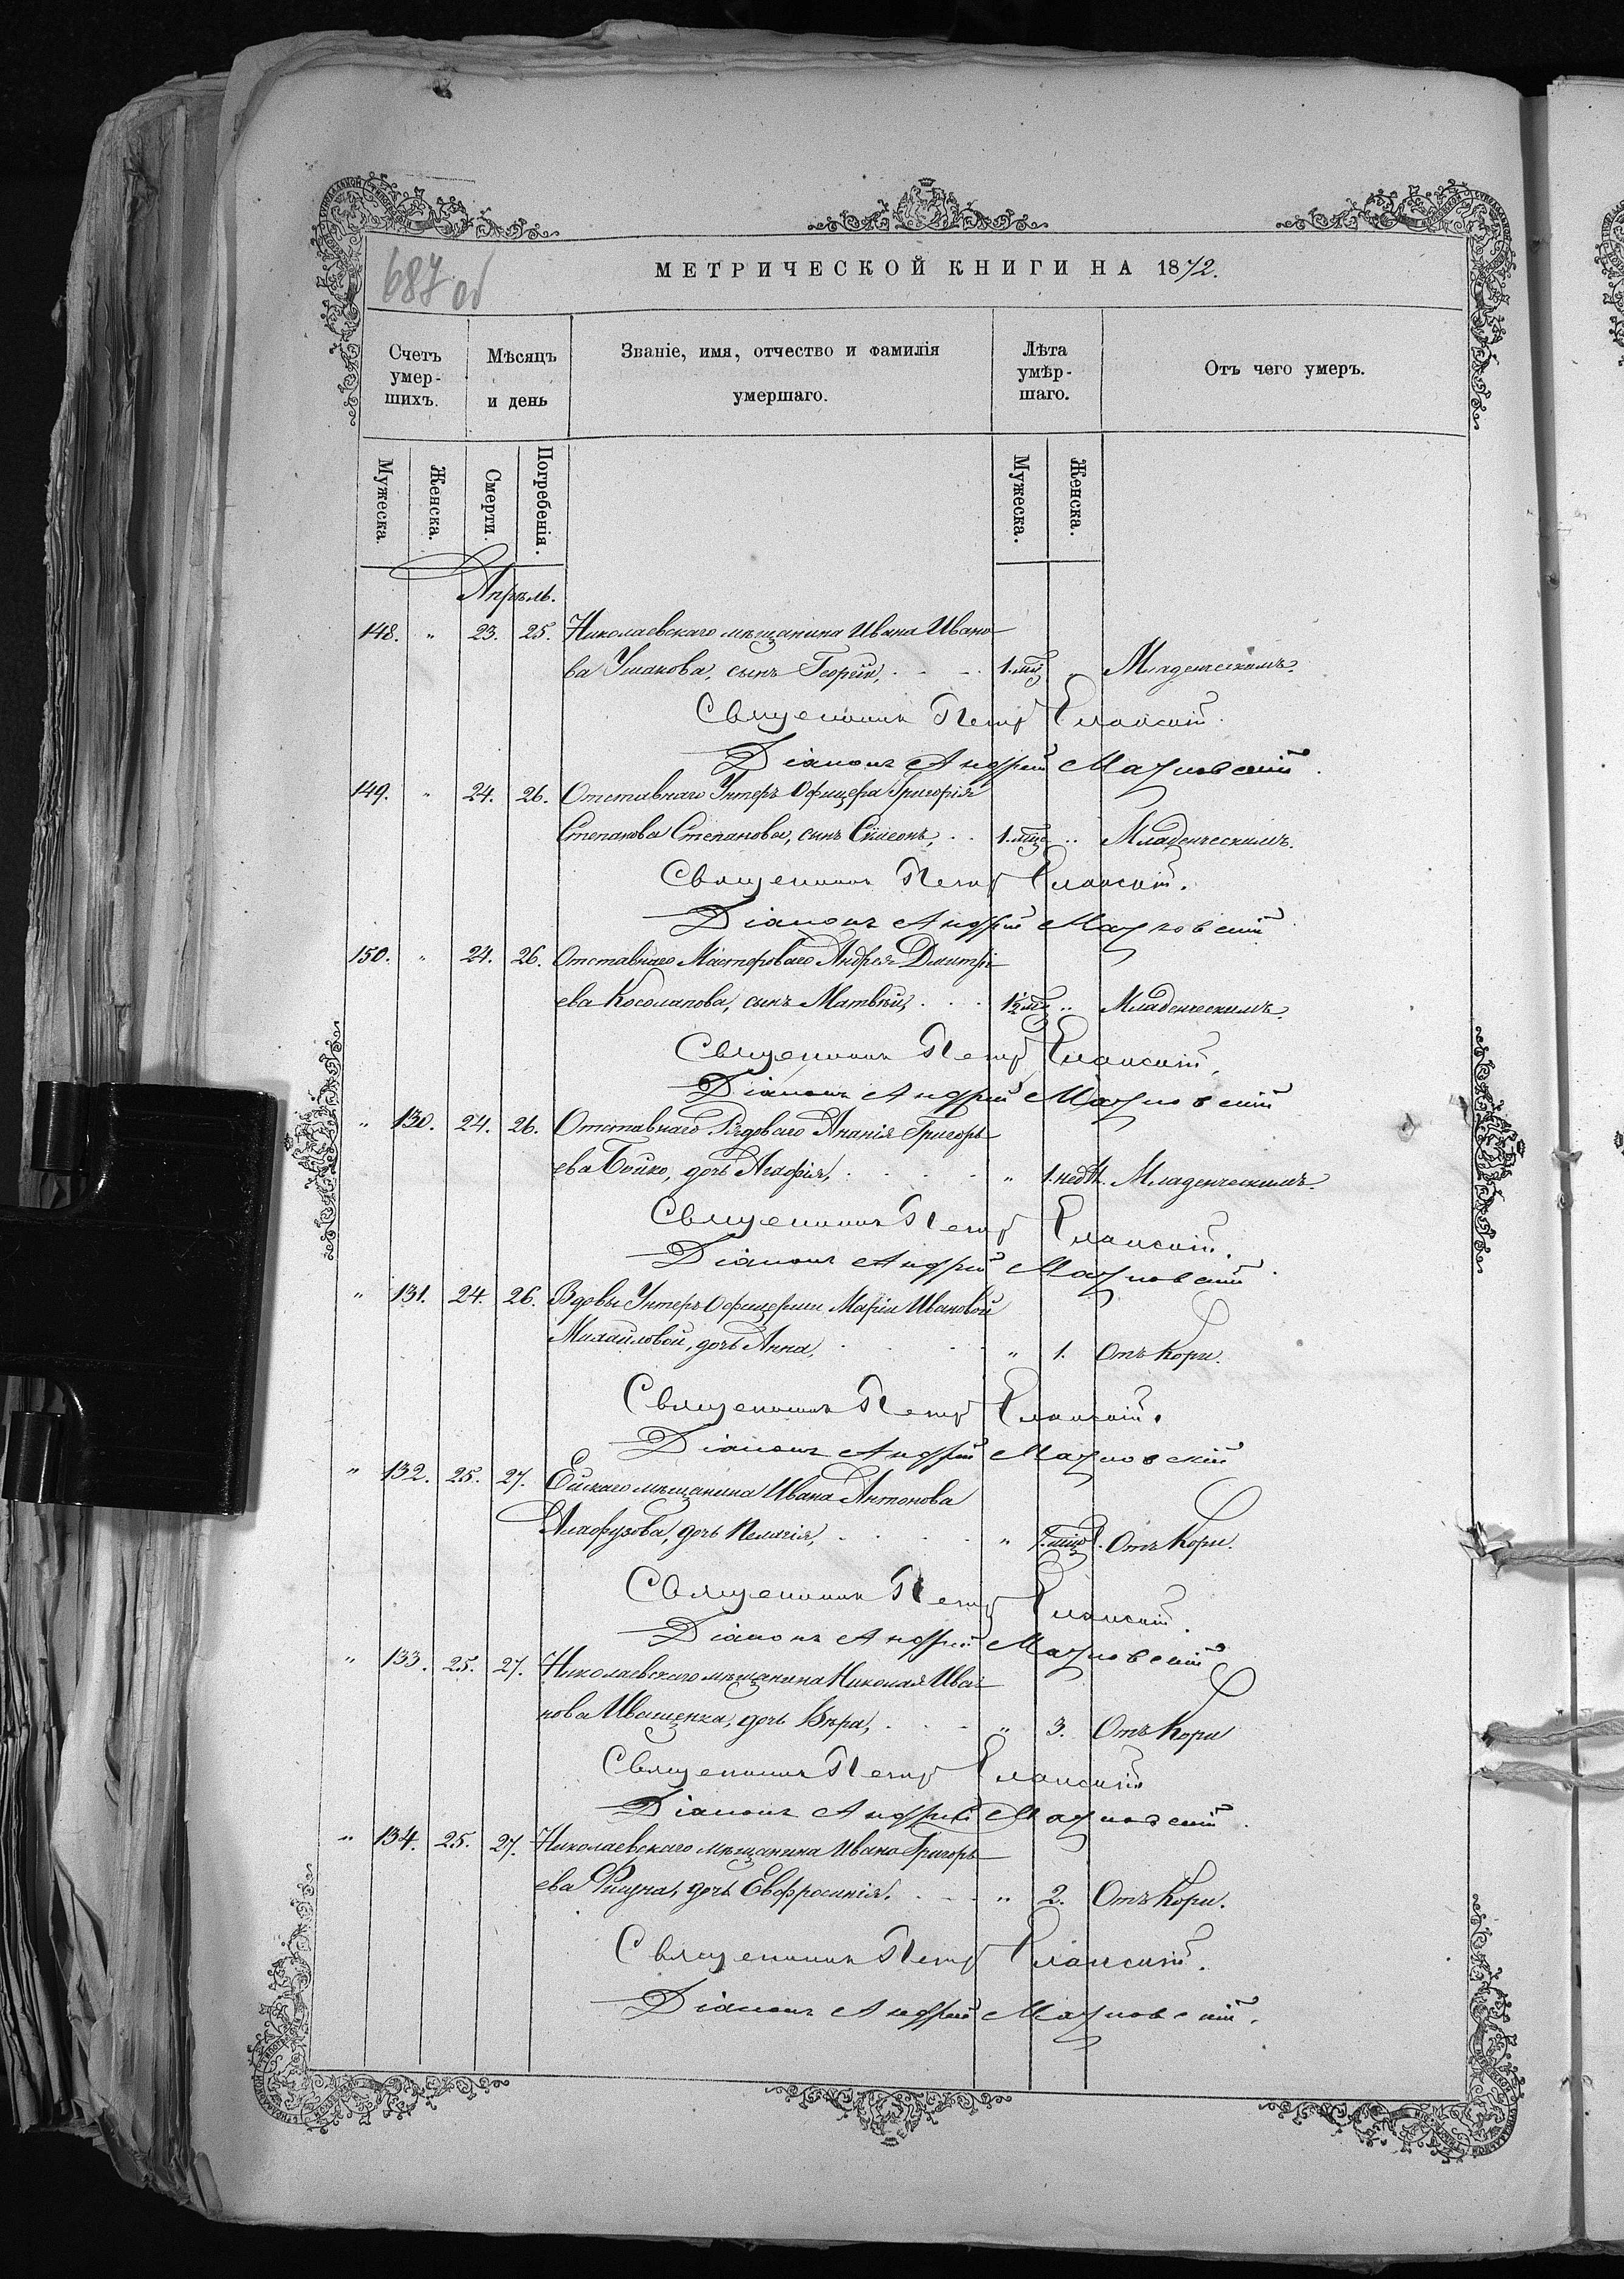 687 об
МЕТРИЧЕСКОЙ КНИГИ НА 1872.
Счетъ умер-шихъ.
Мѣсяцъ и день
Званіе, имя, отчество и фамилія умершаго.
Лѣта умѣр-шаго.
Отъ чего умеръ.
Мужеска.
Женска.
Смерти.
Погребенія.
Мужеска.
Женска.
Апрѣль.
148. " 23. 25. Николаевскаго мѣщанина Ивана Ивано
ва Ушакова, сынъ Георгій, 1.мц " Младенческимъ.
Священникъ Петръ Еланскій.
Діаконъ Андрей
149. " 24. 26. Отставнаго Унтеръ Офицера Григорія
Степанова Степанова, сынъ Сѵмеонъ, 1.мце " Младенческимъ.
Священникъ Петръ Еланскій.
Діаконъ Андрей
150. " 24. 26. Отставнаго Мастероваго Андрея Дмитрі
ева Косолапова, сынъ Матвѣй, 1½мц " Младенческимъ.
Священникъ Петръ Еланскій.
Діаконъ Андрей
" 130. 24. 26. Отставнаго Рядоваго Ананія Григорь
ева Бойко, дочь Агафія, " 1.недѣл. Младенческимъ.
Священникъ Петръ Еланскій.
Діаконъ Андрей
" 131. 24. 26. Вдовы Унтеръ Офицерши Маріи Ивановой
Михайловой, дочь Анна, " 1. Отъ Кори.
Священникъ Петръ Еланскій.
Діаконъ Андрей
" 132. 25. 27. Ейскаго мѣщанина Ивана Антонова
дочь Пелагія, " Отъ Кори.
Священникъ Петръ Еланскій.
Діаконъ Андрей
" 133. 25. 27. Николаевскаго мѣщанина Николая Ива
нова Иващенка, дочь Вѣра, " 3. Отъ Кори
Священникъ Петръ Еланскій
Діаконъ Андрей
" 134. 25. 27. Николаевскаго мѣщанина Ивана Григорь
ева дочь Евфросинія. " 2. Отъ Кори.
Священникъ Петръ Еланскій.
Діаконъ Андрей